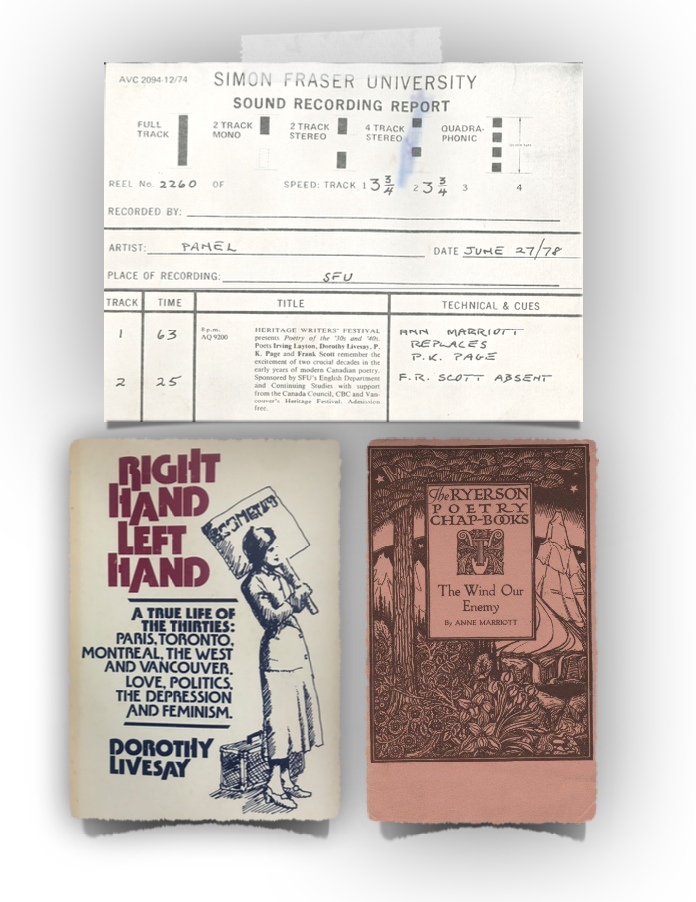 AVC 2094-12/74 SIMON FRASER UNIVERSITY
SOUND RECORDING REPORT
FULL TRACK
2 TRACK MONO
2 TRACK STEREO
4 TRACK STEREO
QUADRA-PHONIC
REEL No. 2260 OF SPEED: TRACK 1 3 3/4 2 3 3/4 3 4
RECORDED BY:
ARTIST: PANEL DATE JUNE 27/78
PLACE OF RECORDING: SFU
TRACK TIME TITLE TECHNICAL & CUES
1 63
8 p.m.
AQ 9200
HERITAGE WRITERS' FESTIVAL
presents Poetry of the '30s and '40s.
Poets Irving Layton, Dorothy Livesay, P.
K. Page and Frank Scott remember the
excitement of two crucial decades in the
early years of modern Canadian poetry.
Sponsored by SFU's English Department
and Continuing Studies with support
from the Canada Council, CBC and Van-
couver's Heritage Festival. Admission
free.
ANN MARRIOTT
REPLACES
P.K. PAGE
2 25
F.R. SCOTT ABSENT
RIGHT
HAND
LEFT
HAND
A TRUE LIFE OF
THE THIRTIES:
PARIS, TORONTO,
MONTREAL, THE WEST
AND VANCOUVER.
LOVE, POLITICS,
THE DEPRESSION
AND FEMINISM.
DOROTHY
LIVESAY
The RYERSON
POETRY
CHAP-BOOKS
The Wind Our
Enemy
By ANNE MARRIOTT